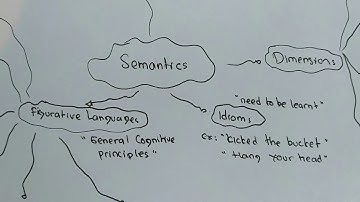 Semantics
Dimensions
Figurative Languages
"General Cognitive
principles"
"need to be learnt"
Idioms
ex: "Kicked the bucket"
"Hang your head"